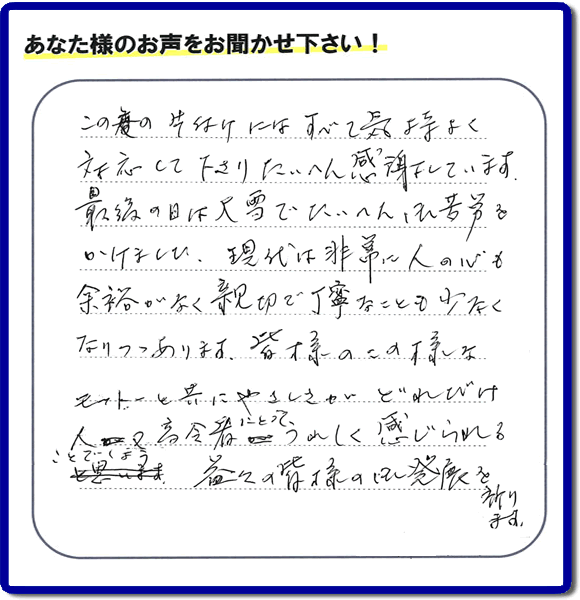 あなた様のお声をお聞かせ下さい！
この度の片付けにはすべて気持よく
対応して下さりたいへん感謝しています。
最後の日は大雪でたいへん御苦労を
かけました。現代は非常に人の心も
余裕がなく親切で丁寧なことも少なく
なりつつあります。皆様のこの様な
モットーと共にやさしさが どれだけ
人 高令者にとって、うれしく感じられる
ことでしょう
と思います。益々の皆様の御発展を
祈り
ます。